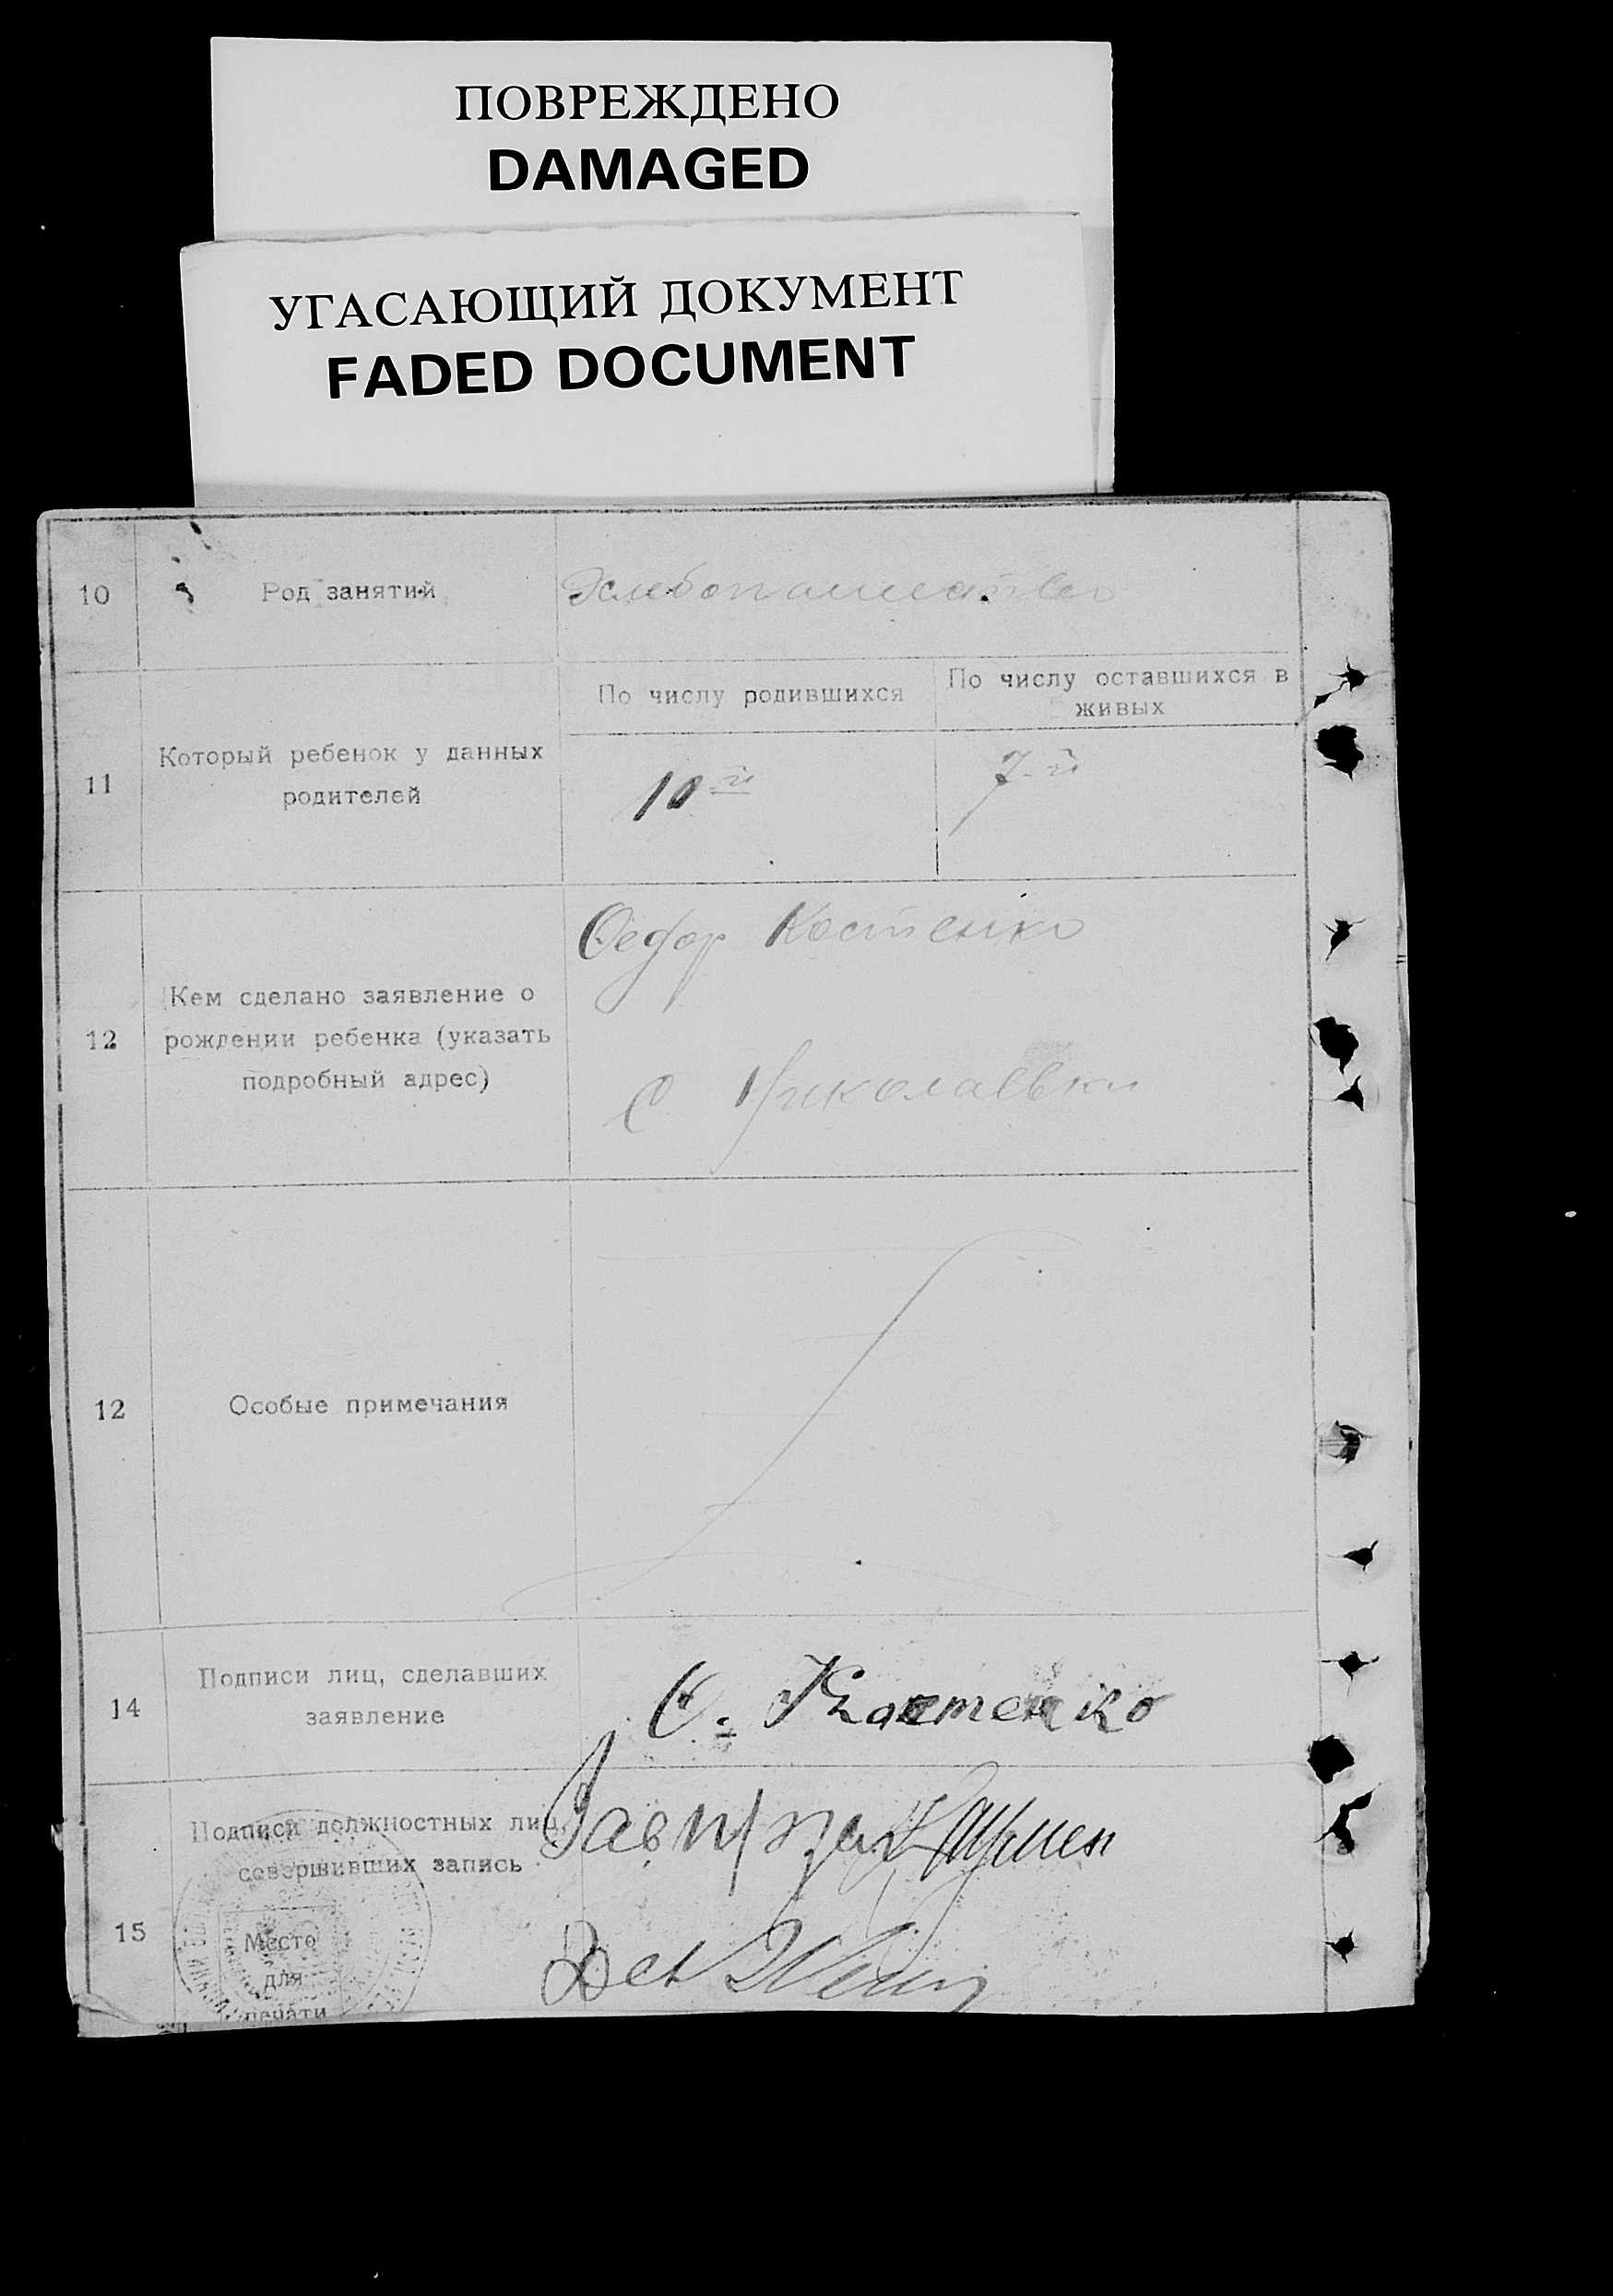 ПОВРЕЖДЕНО
DAMAGED
УГАСАЮЩИЙ ДОКУМЕНТ
FADED DOCUMENT
10 Род занятий Хлебопашество
По числу родившихся По числу оставшихся в
живых
11 Который ребенок у данных
родителей
10-й 7-й
Федор Костенко
12 Кем сделано заявление о
рождении ребенка (указать
подробный адрес)
С Николаевки
12 Особые примечания
14 Подписи лиц, сделавших
заявление
Ф. Костенко
Подписи должностных лиц,
совершивших запись
Зав п/
15 Место
для
печати